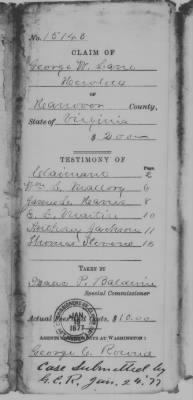 No. 15143
CLAIM OF
George W. Lane
OF
Hanover County,
State of Virginia
$ 200
TESTIMONY OF
Page.
Claimant 2
Wm L. Mallory 6
James L. Harris 8
E. L. Martin 10
Anthony Jackson 11
Thomas Stevens 15
TAKEN BY
Isaac P. Baldwin
Special Commissioner
Actual Fees and Costs, $10.00
JAN
1877
AGENTS OR ATTORNEYS AT WASHINGTON:
George C. Round
Case Submitted by
G.C.R. Jan. 24, 77